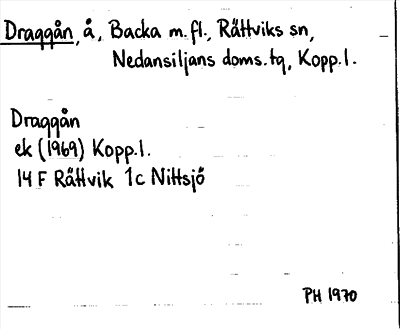 Draggån, å, Backa m.fl., Rättviks sn,
Nedansiljans doms.tg, Kopp.l.
Draggån
ek (1969) Kopp.l.
14 F Rättvik 1c Nittsjö
PH 1970